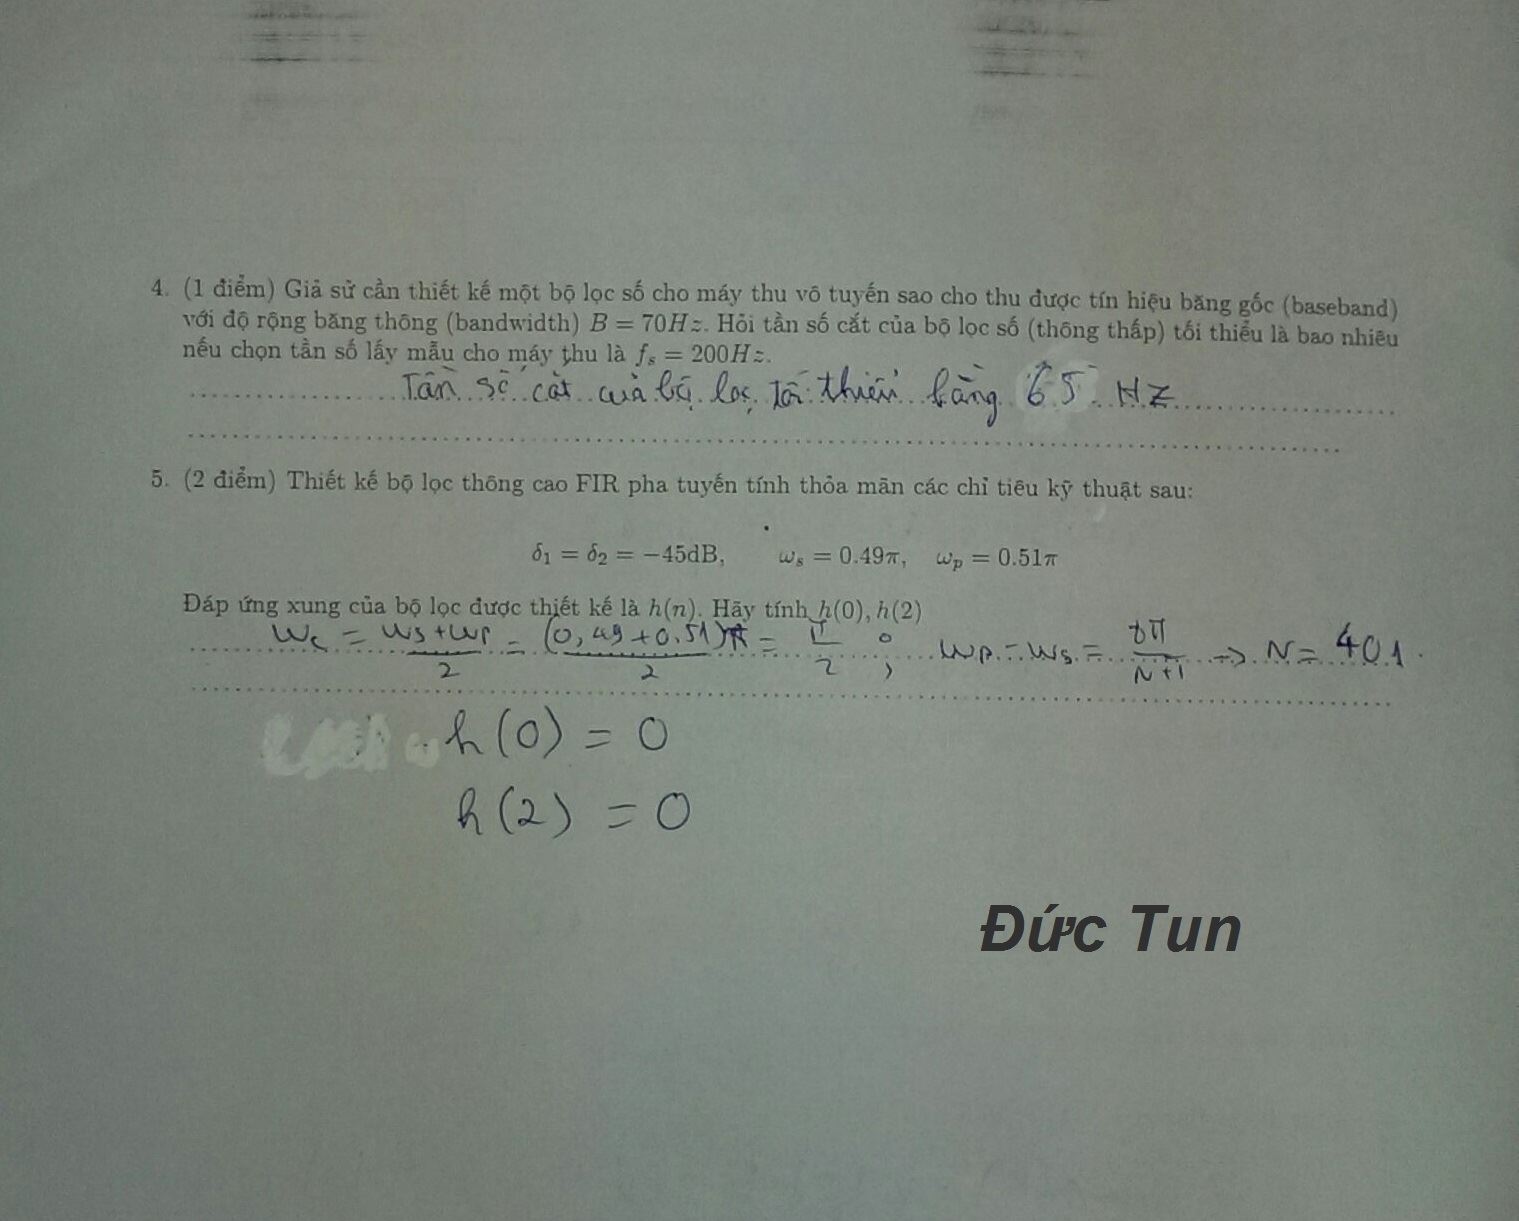 4. (1 điểm) Giả sử cần thiết kế một bộ lọc số cho máy thu vô tuyến sao cho thu được tín hiệu băng gốc (baseband)
với độ rộng băng thông (bandwidth) B = 70Hz. Hỏi tần số cắt của bộ lọc số (thông thấp) tối thiểu là bao nhiêu
nếu chọn tần số lấy mẫu cho máy thu là fₛ = 200Hz.
Tần số cắt của bộ lọc tối thiểu bằng 65 Hz
5. (2 điểm) Thiết kế bộ lọc thông cao FIR pha tuyến tính thỏa mãn các chỉ tiêu kỹ thuật sau:
δ₁ = δ₂ = −45dB, ωₛ = 0.49π, ωₚ = 0.51π
Đáp ứng xung của bộ lọc được thiết kế là h(n). Hãy tính h(0), h(2)
ωc = (ωs+ωp)/2 = (0,49+0.51)π/2 = π/2 ; ωp - ωs = 8π/(N+1) → N = 401.
h(0) = 0
h(2) = 0
Đức Tun